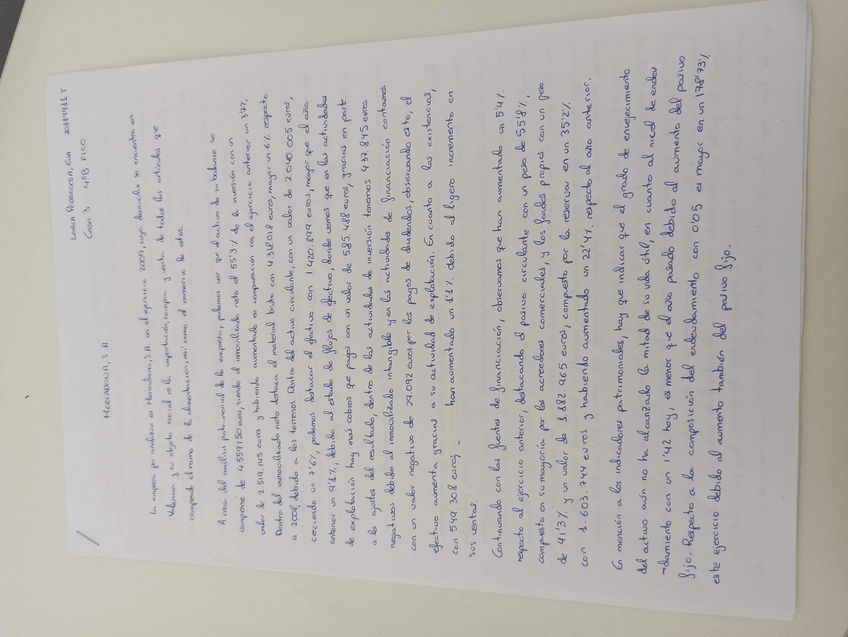 LORCA PEDREGOSA, EVA 20849911 T
CASO 3 4ºB FICO
MERCADONA, S.A
La empresa por analizar es Mercadona, S.A en el ejercicio 2009, cuyo domicilio se encuentra en
Valencia y su objeto social es la importación, compra y venta de todos los artículos que
comprende el ramo de la alimentación, así como el comercio de estos.
A cerca del análisis patrimonial de la empresa, podemos ver que el activo de su balance se
compone de 4.559.150 euros, siendo el inmovilizado neto el 55'3% de la inversión con un
valor de 2.519.145 euros y habiendo aumentado en comparación con el ejercicio anterior un 3'7%.
Dentro del inmovilizado neto destaca el material bruto con 4.318.018 euros, mayor un 6% respecto
a 2008, debido a los terrenos. Dentro del activo circulante, con un valor de 2.040.005 euros,
creciendo un 7'6%, podemos destacar el efectivo con 1.420.899 euros, mayor que el año
anterior un 9'1%, debido al estado de flujos de efectivo, donde vemos que en las actividades
de explotación hay más cobros que pagos con un valor de 585.488 euros, gracias en parte
a los ajustes del resultado, dentro de las actividades de inversión tenemos 437.845 euros
negativos debido al inmovilizado intangible y en las actividades de financiación contamos
con un valor negativo de 29.092 euros por los pagos de dividendos, observando esto, el
efectivo aumenta gracias a su actividad de explotación. En cuanto a las existencias,
con 549.308 euros, han aumentado un 1'1% debido al ligero incremento en
sus ventas.
Continuando con las fuentes de financiación, observamos que han aumentado un 5'4%
respecto al ejercicio anterior, destacando el pasivo circulante con un peso de 55'8%,
compuesto en su mayoría por los acreedores comerciales, y los fondos propios con un peso
de 41'3% y un valor de 1.882.965 euros, compuesto por las reservas en un 35'2%
con 1.603.744 euros y habiendo aumentado un 22'4% respecto al año anterior.
En mención a los indicadores patrimoniales, hay que indicar que el grado de envejecimiento
del activo aún no ha alcanzado la mitad de su vida útil, en cuanto al nivel de endeu
-damiento con un 1'42 hoy, es menor que el año pasado debido al aumento del pasivo
fijo. Respecto a la composición del endeudamiento con 0'05 es mayor en un 178'73%
este ejercicio debido al aumento también del pasivo fijo.